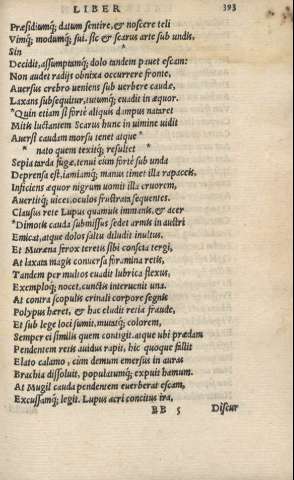 LIBER 393
Præsidiumq; datum sentire, & noscere teli
Vimq; modumq; sui. sic & scarus arte sub undis.
Sin *
Decidit, assumptamq; dolo tandem pauet escam:
Non audet radijs obnixa occurrere fronte,
Auersus crebro ueniens sub uerbere caudæ,
Laxans subsequitur, tutumq; euadit in æquor.
*Quin etiam si fortè aliquis dumpus nataret
Mitis luctantem Scarus hunc in uimine uidit
Auersi caudam morsu tenet atque *
* nato quem texitq; resultet *
Sepia tarda fugæ, tenui cum fortè sub unda
Deprensa est, iamiamq; manus timet illa rapaceis,
Inficiens æquor nigrum uomit illa cruorem,
Auertitq; uices, oculos frustrata sequentes.
Clausus rete Lupus quamuis immanis, & acer
*Dimotis cauda submissus sedet armis in austri
Emicat, atque dolos saltu diludit inultus.
Et Murena ferox teretis sibi conscia tergi,
At laxata magis conuersa foramina retis,
Tandem per multos euadit lubrica flexus,
Exemploq; nocet, cunctis interuenit una.
At contra scopulis crinali corpore segnis
Polypus hæret, & hac eludit retia fraude,
Et sub lege loci sumit, mutatq; colorem,
Semper ei similis quem contigit. atque ubi prædam
Pendentem retis auidus rapit, hic quoque fallit
Elato calamo, cum demum emersus in auras
Brachia dissoluit, populatumq; expuit hamum.
At Mugil cauda pendentem euerberat escam,
Excussamq; legit. Lupus acri concitus ira,
BB 5 Discur